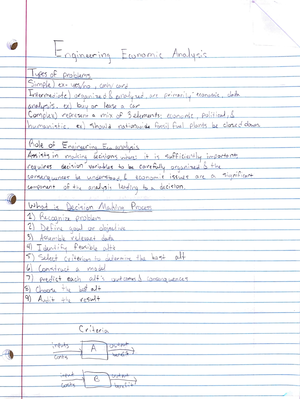 Engineering Economic Analysis
Types of problems
Simple) ex- yes/no, only card
Intermediate) organized & analyzed, are primarily economic, data
analysis. ex) buy or lease a car
Complex) represent a mix of 3 elements: economic, political, &
humanistic. ex) should nationwide fossil fuel plants be closed down
Role of Engineering Eco analysis
Assists in making decisions where it is sufficiently important,
requires decision variables to be carefully organized & the
consequences be understood, & economic issues are a significant
component of the analysis leading to a decision.
What is Decision Making Process
1) Recognize problem
2) Define goal or objective
3) Assemble relevant data
4) Identify feasible alts
5) Select criterion to determine the best alt
6) Construct a model
7) Predict each alt's outcomes & consequences
8) Choose the best alt
9) Audit the result
Criteria
inputs A output
costs benefit
input B output
costs benefits